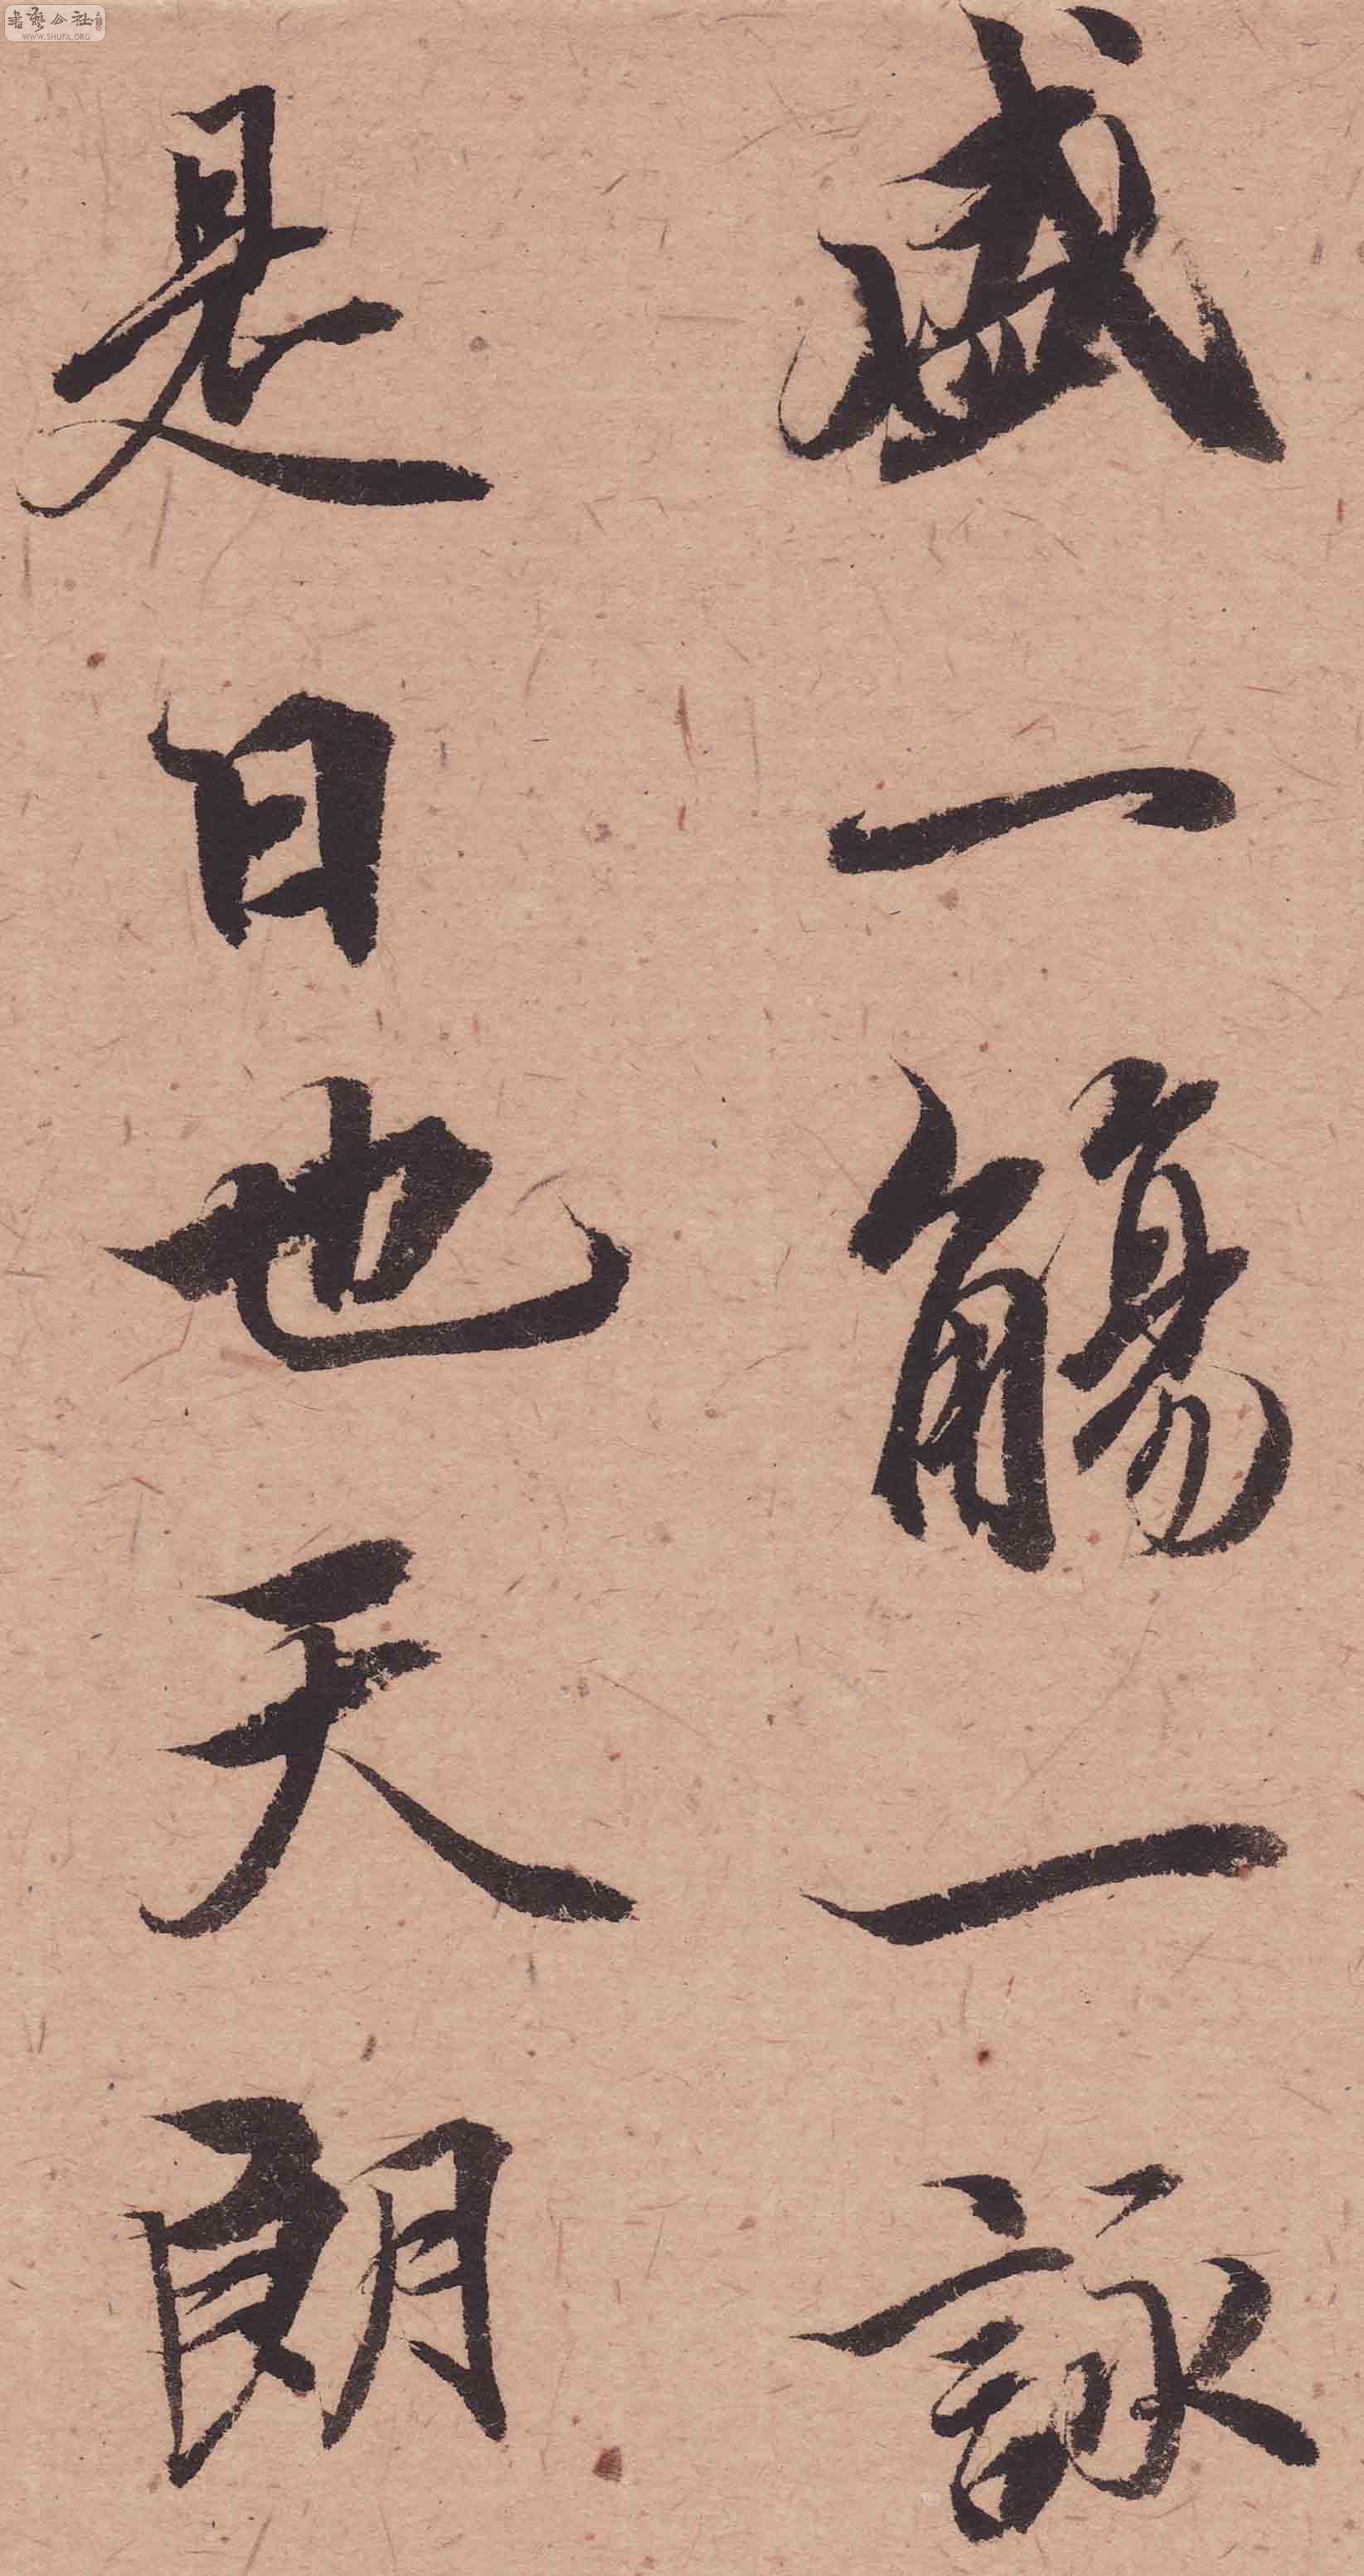 盛一觴一詠
是日也天朗
書藝公社
WWW.SHUFA.ORG